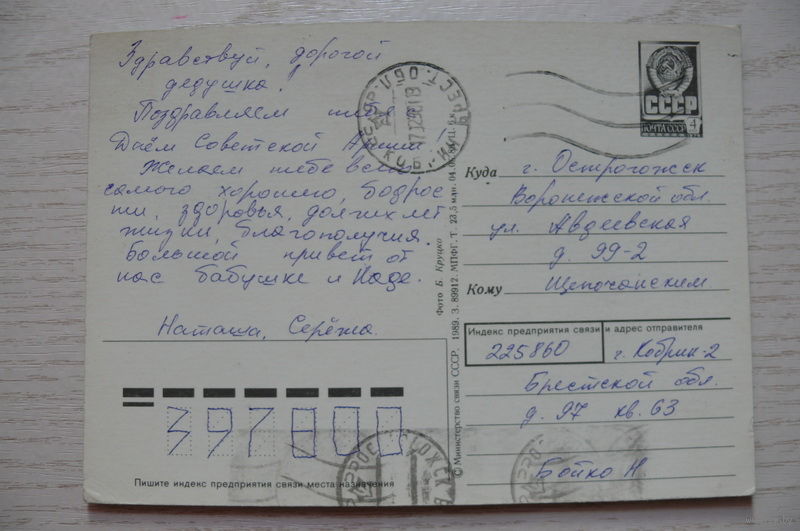 Здравствуй, дорогой
дедушка.
Поздравляем тебя с
Днём Советской Армии!
Желаем тебе всего
самого хорошего, бодрос
ти, здоровья, долгих лет
жизни, благополучия.
Большой привет от
нас бабушке и Наде.
Наташа, Серёжа.
СССР
ПОЧТА СССР
4
Куда г. Острогожск
Воронежской обл.
ул. Авдеевская
д. 99-2
Кому Щепочанским
Индекс предприятия связи и адрес отправителя
225860 г. Кобрин-2
Брестской обл.
д. 97 кв. 63
Бойко Н
397800
Пишите индекс предприятия связи места назначения
Фото Б. Круцко
© Министерство связи СССР. 1989. З. 89912. МПФГ. Т. 23,5 млн.